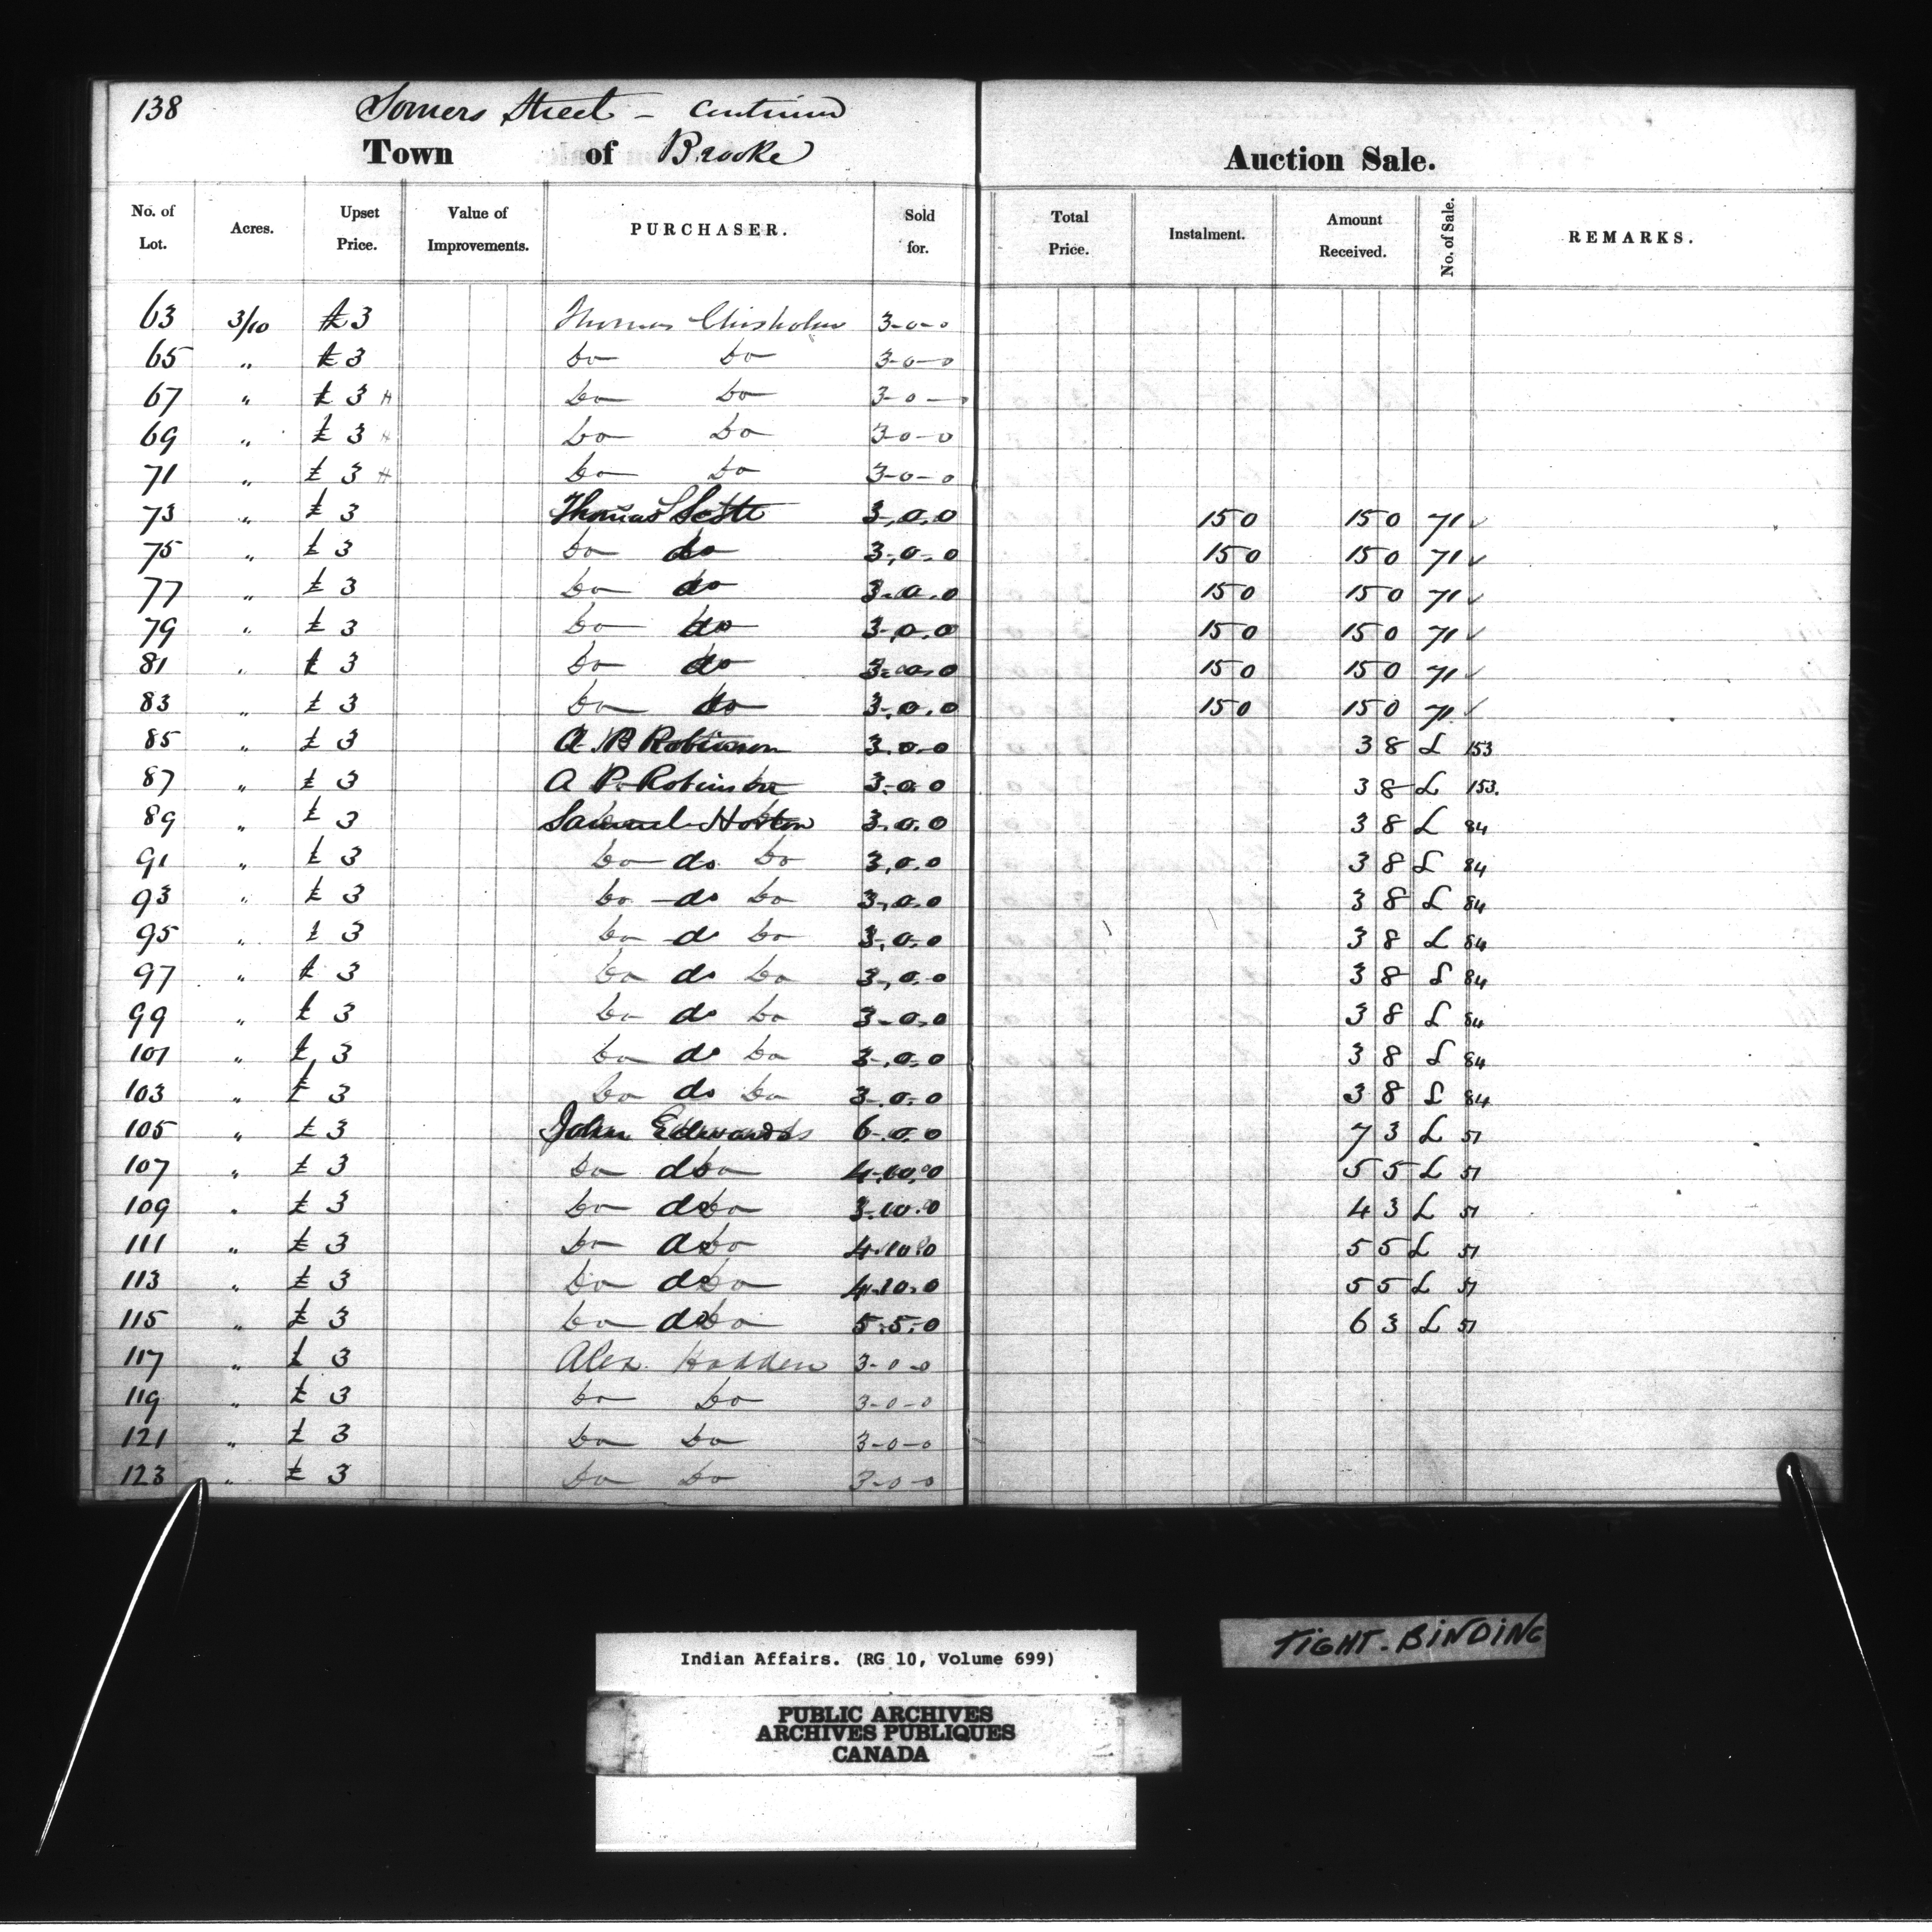 138 Somers Street - Continued
Town of Brooke Auction Sale.
No. of Lot. Acres. Upset Price. Value of Improvements. PURCHASER. Sold for. Total Price. Instalment. Amount Received. No. of Sale. REMARKS.
63 3/10 £3 Thomas Chisholm 3-0-0
65 " £3 Do Do 3-0-0
67 " £3 H Do Do 3-0-0
69 " £3 H Do Do 3-0-0
71 " £3 H Do Do 3-0-0
73 " £3 Thomas Scott 3.0.0 150 150 71 ✓
75 " £3 Do do 3.0.0 150 150 71 ✓
77 " £3 Do do 3.0.0 150 150 71 ✓
79 " £3 Do do 3.0.0 150 150 71 ✓
81 " £3 Do do 3.0.0 150 150 71 ✓
83 " £3 Do do 3.0.0 150 150 71 ✓
85 " £3 A. P. Robinson 3.0.0 38 L 153
87 " £3 A P. Robinson 3.0.0 38 L 153.
89 " £3 Samuel Horton 3.0.0 38 L 84
91 " £3 Do do Do 3.0.0 38 L 84
93 " £3 Do do Do 3.0.0 38 L 84
95 " £3 Do do Do 3.0.0 38 L 84
97 " £3 Do do Do 3.0.0 38 L 84
99 " £3 Do do Do 3.0.0 38 L 84
101 " £3 Do do Do 3.0.0 38 L 84
103 " £3 Do do Do 3.0.0 38 L 84
105 " £3 John Edwards 6.0.0 73 L 51
107 " £3 Do do Do 4.10.0 55 L 51
109 " £3 Do do Do 3.10.0 43 L 51
111 " £3 Do do Do 4.10.0 55 L 51
113 " £3 Do do Do 4.10.0 55 L 51
115 " £3 Do do Do 5.5.0 63 L 51
117 " £3 Alex. Hadden 3-0-0
119 " £3 Do Do 3-0-0
121 " £3 Do Do 3-0-0
123 " £3 Do Do 3-0-0
TIGHT-BINDING
Indian Affairs. (RG 10, Volume 699)
PUBLIC ARCHIVES
ARCHIVES PUBLIQUES
CANADA